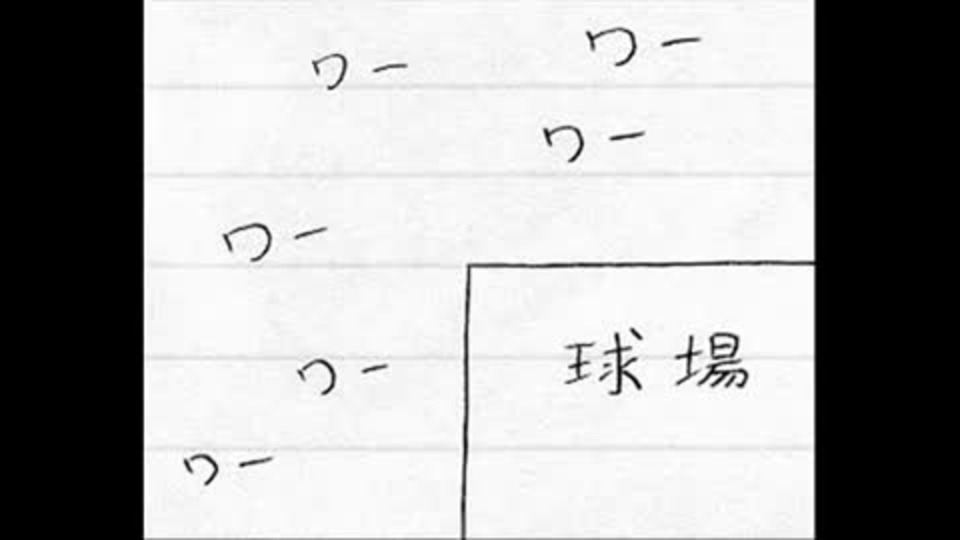 ワー
ワー
ワー
ワー
球場
ワー
ワー